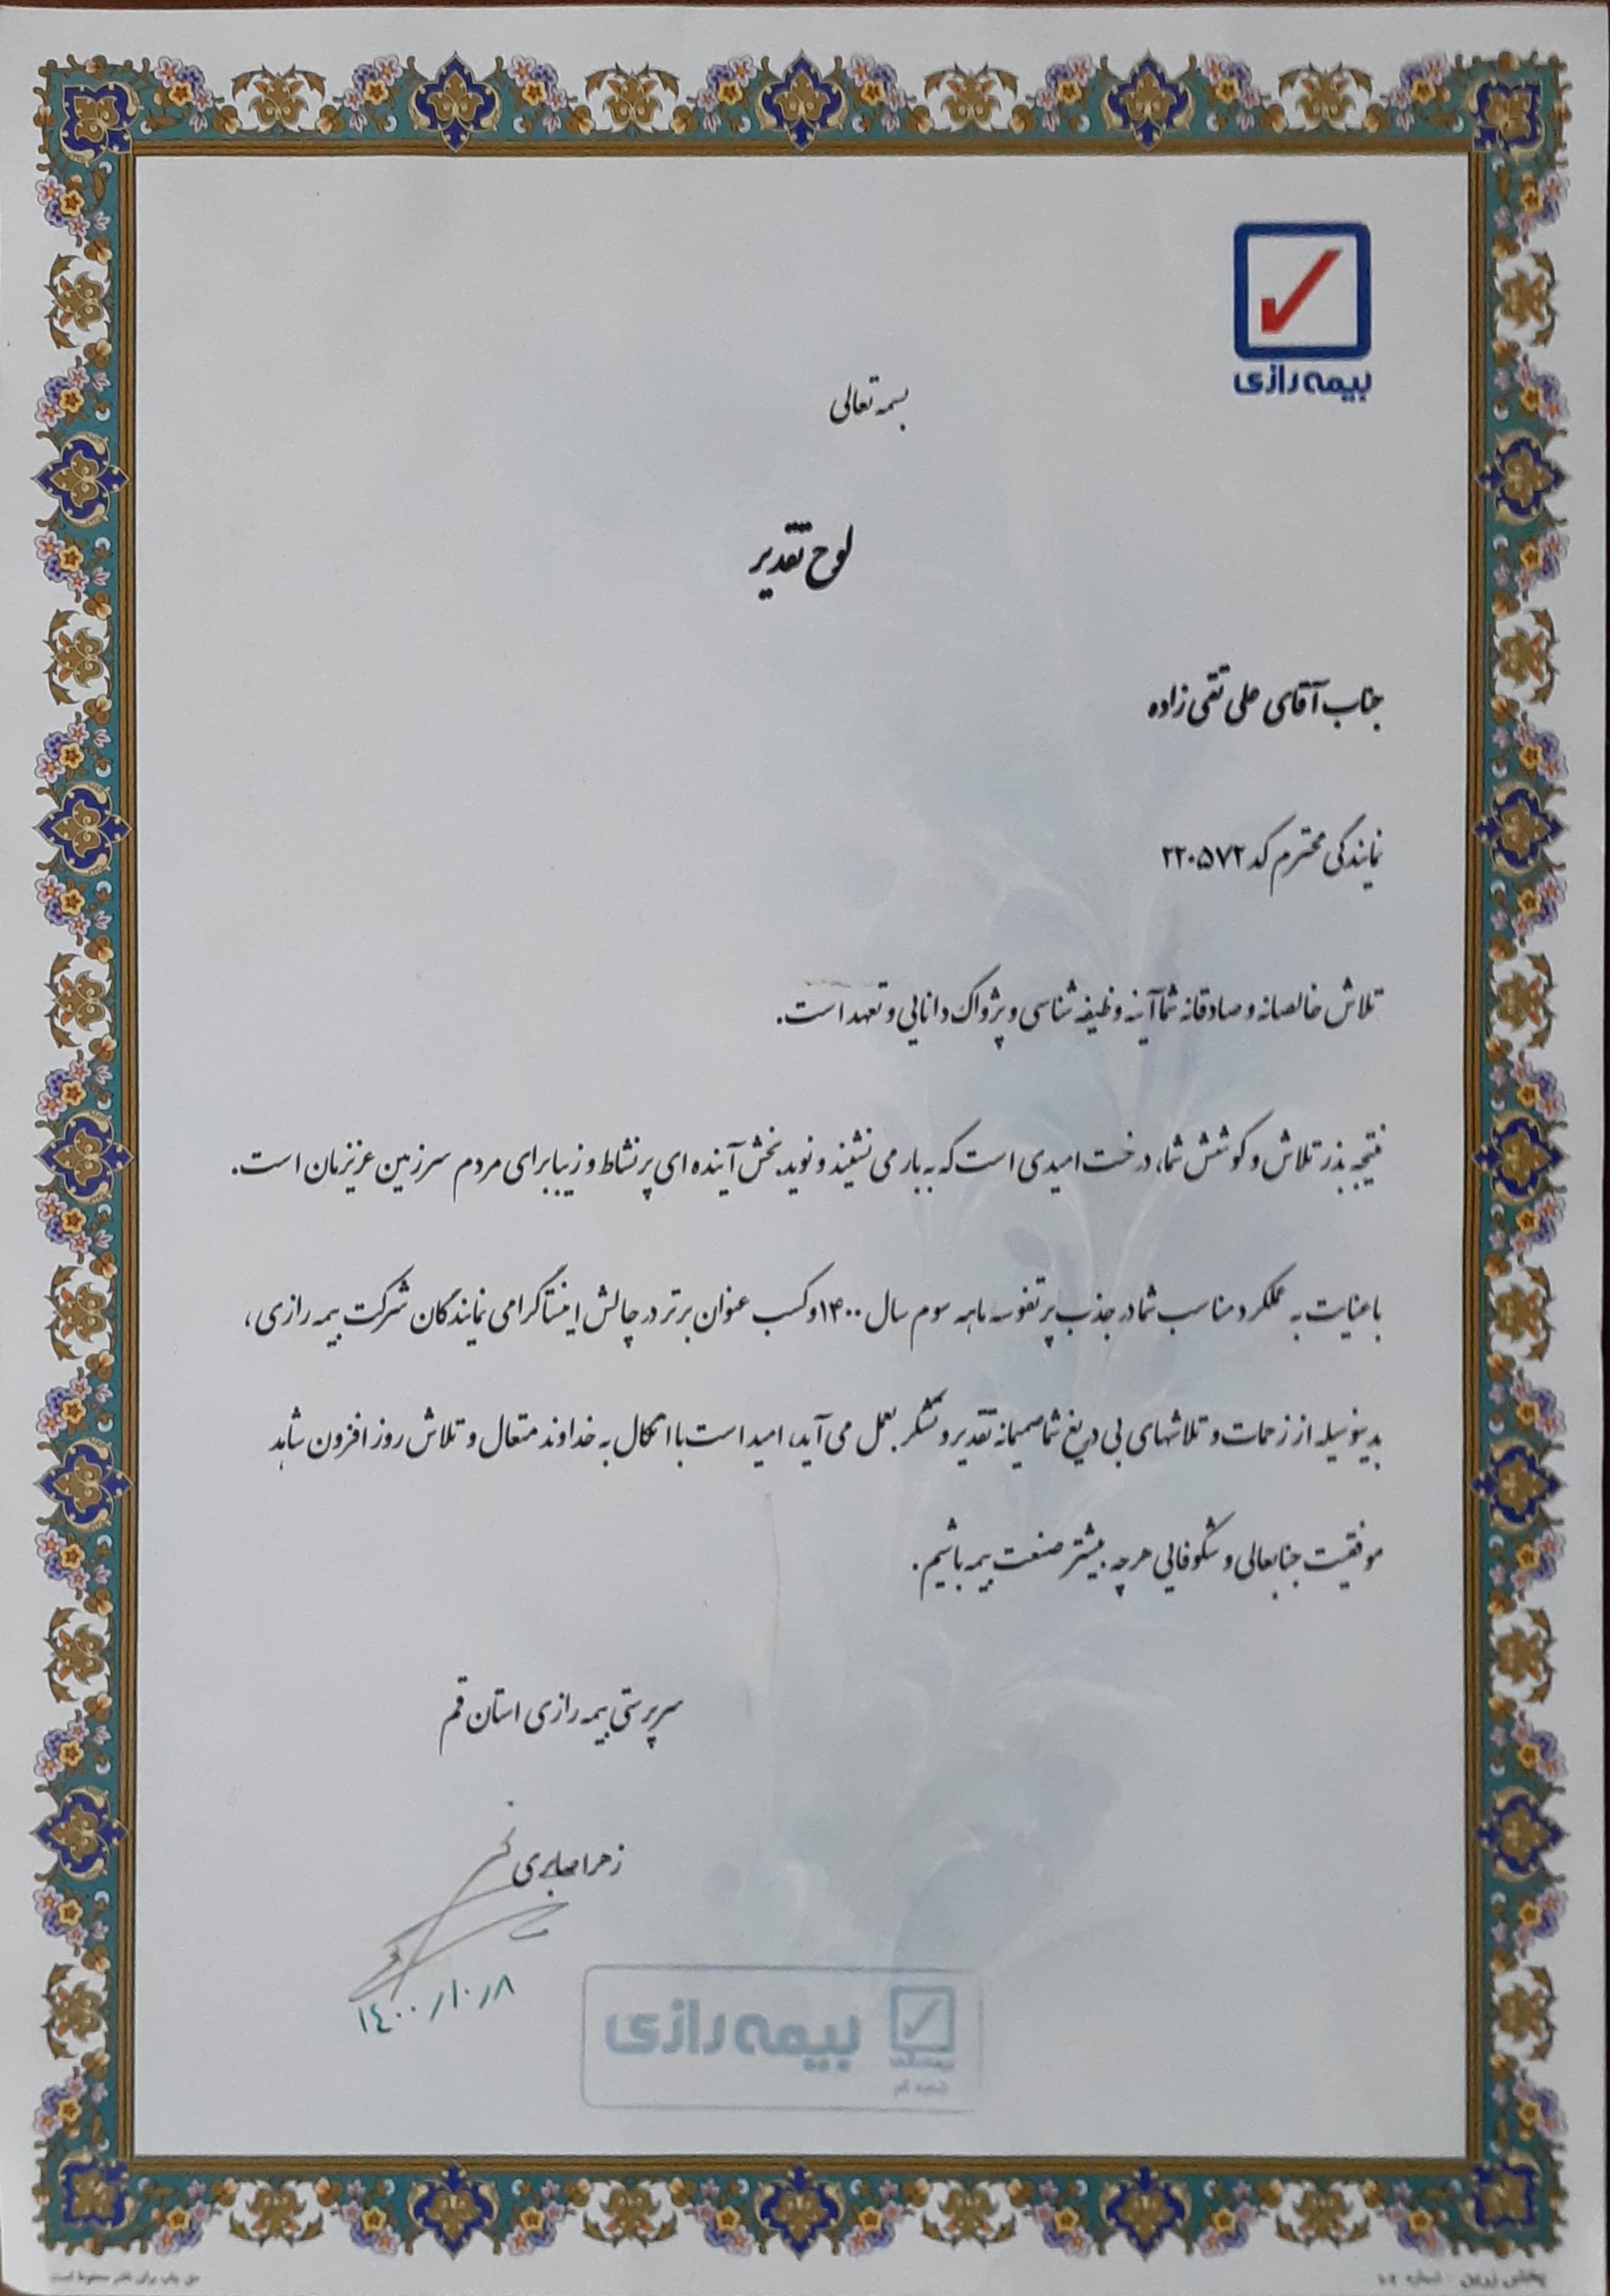 بیمه رازی
بسمه تعالی
لوح تقدیر
جناب آقای علی تقی زاده
نمایندگی محترم کد ۲۲۰۵۷۲
تلاش خالصانه و صادقانه شما آینه وظیفه شناسی و پژواک دانایی و تعهد است.
نتیجه بذر تلاش و کوشش شما، درخت امیدی است که به بار می نشیند و نوید بخش آینده ای پر نشاط و زیبا برای مردم سرزمین عزیزمان است.
با عنایت به عملکرد مناسب شما در جذب پرتفوسه ماهه سوم سال ۱۴۰۰ و کسب عنوان برتر در چالش اینستاگرامی نمایندگان شرکت بیمه رازی،
بدینوسیله از زحمات و تلاشهای بی دریغ شما صمیمانه تقدیر و تشکر بعمل می آید، امید است با اتکال به خداوند متعال و تلاش روز افزون شاهد
موفقیت جنابعالی و شکوفایی هرچه بیشتر صنعت بیمه باشیم.
سرپرستی بیمه رازی استان قم
زهرا صابری
۱۴۰۰/۱۰/۸
بیمه رازی
حق چاپ برای ناشر محفوظ است